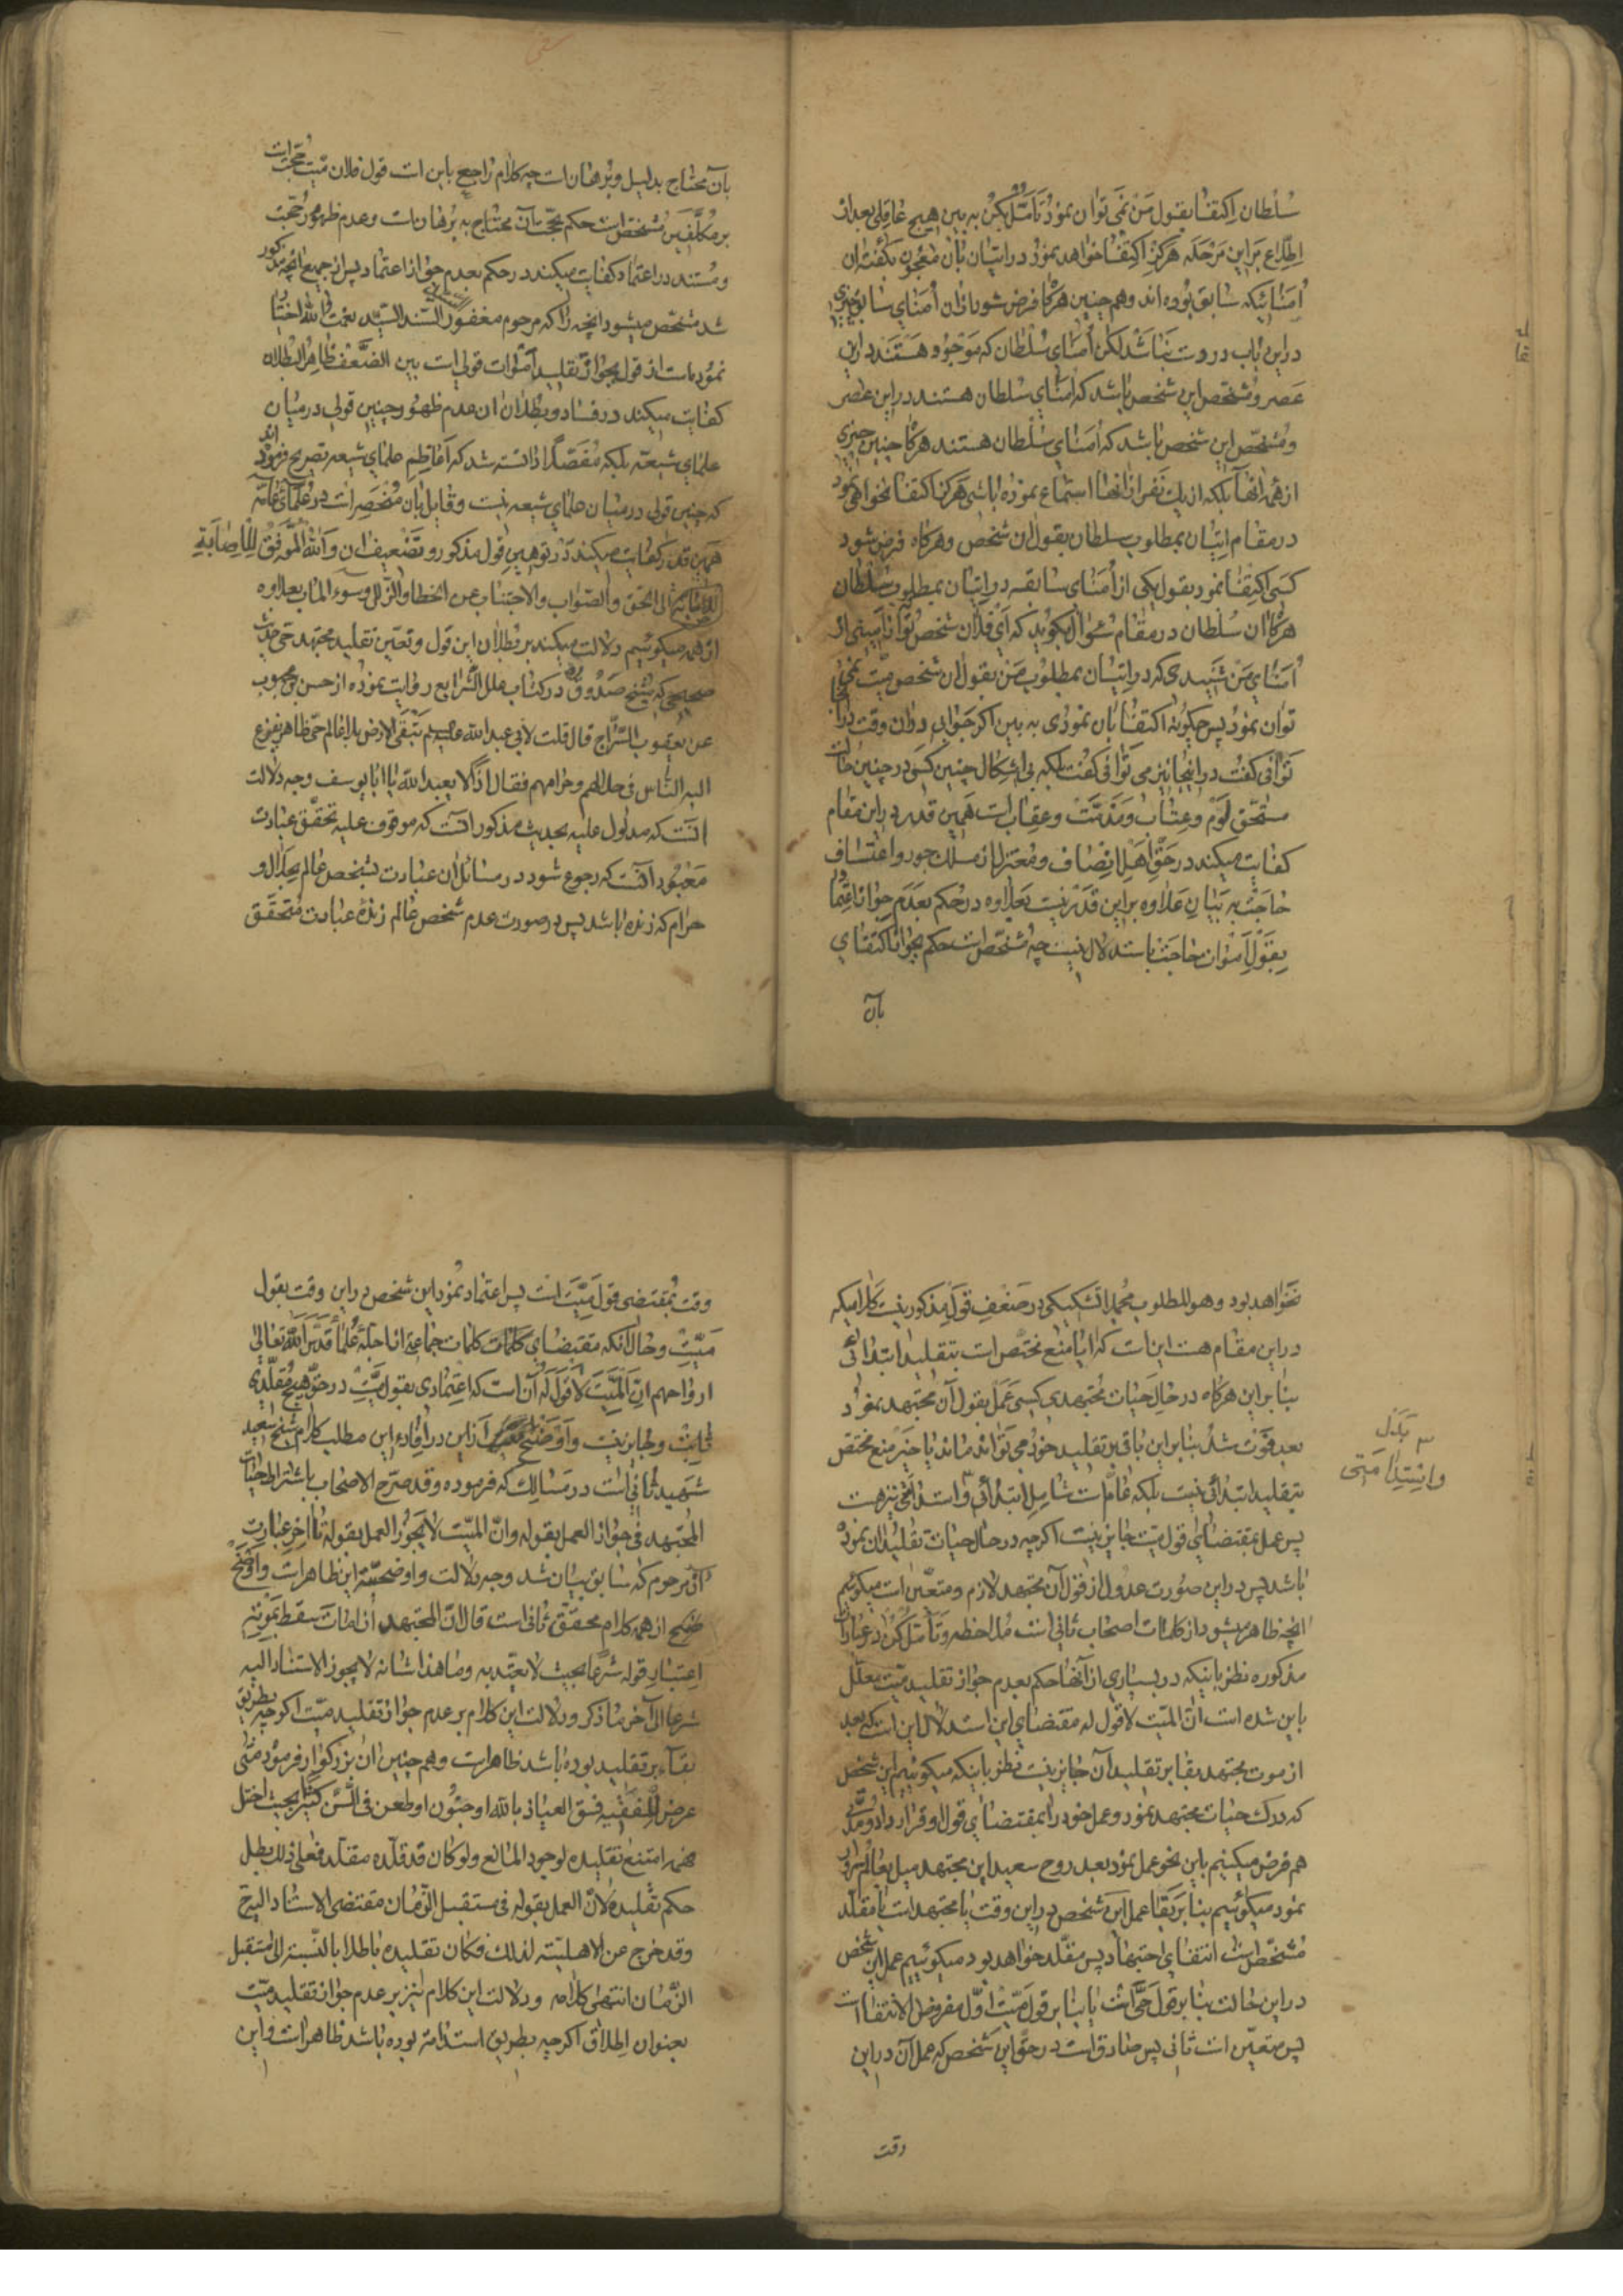 سلطان اکتفا بقول من نمی توان نمود تأمل کن به بین هیچ عاقلی بعد از
اطلاع بر این مرحله هرگز اکتفا خواهد نمود در اتیان بآن معجون بگفته ان
امنائیکه سابق بوده اند و هم چنین هرگاه فرض شود از ان امنای سابق چیزی
در این باب در دست نباشد لکن امنای سلطان که موجود هستند در این
عصر و مشخص این شخص باشد که امنای سلطان هستند در این عصر
و مشخص این شخص باشد که امنای سلطان هستند هرگاه چنین چیزی
از همه انها بلکه از یک نفر از انها استماع نموده باشی هرگز اکتفا نخواهی نمود
در مقام اتیان بمطلوب سلطان بقول ان شخص و هرگاه فرض شود
کسی اکتفا نمود بقول یکی از امنای سابقه در اتیان بمطلوب سلطان
هرگاه ان سلطان در مقام سؤال بگوید که ای فلان شخص تو آیا نه از
امنای من شنیدی که در اتیان بمطلوب من بقول ان شخص میت نمی
توان نمود پس چگونه اکتفا بان نمودی به بین اگر جوابی در ان وقت
توانی گفت در اینجا نیز می توانی گفت بلکه بی اشکال چنین کسی در چنین حالت
مستحق لوم و عتاب و مذمت و عقاب است همین قدر در این مقام
کفایت میکند در حق اهل انصاف و معتزل از مسلک جور و اعتساف
حاجت به بیان علاوه بر این قدر نیست بعلاوه در حکم بعدم جواز اعتماد
بقول اموات حاجت باستدلال نیست چه مشخص است حکم بجواز اکتفای
بآن
بآن محتاج بدلیل و برهان است چه کلام راجع باین است قول فلان میت حجت است
بر مکلفین مشخص است حکم بحجیت آن محتاج به برهان است و عدم ظهور حجت
و مستند در اعتماد کفایت میکند در حکم بعدم جواز اعتماد پس از جمیع انچه مذکور
شد مشخص میشود انچه را که مرحوم مغفور السند السید نعمت الله اختیار
نموده است از قول بجواز تقلید اموات قولی است بین الضعف ظاهر البطلان
کفایت میکند در فساد و بطلان ان عدم ظهور چنین قولی در میان
علمای شیعه بلکه مفصلا دانسته شد که اعاظم علمای شیعه تصریح فرموده اند
که چنین قولی در میان علمای شیعه نیست و قایل بان منحصر است در علمای عامه
همین قدر کفایت میکند در توهین قول مذکور و تضعیف ان والله الموفق للاصابة
الی الحق والصواب والاجتناب عن الخطا والزلل وسوء الماب بعلاوه
از همه میگوئیم دلالت میکند بر بطلان این قول و تعین تقلید مجتهد حی حدیث
صحیحی که شیخ صدوق ره در کتاب علل الشرایع روایت نموده از حسن بن محبوب
عن یعقوب السراج قال قلت لابی عبد الله علیه السلام تبقی الارض بلا عالم حی ظاهر یفزع
الیه الناس فی حلالهم و حرامهم فقال اذا لا یعبد الله یا ابا یوسف وجه دلالت
انست که مدلول علیه بحدیث مذکور انست که موقوف علیه تحقق عبادت
معبود انست که رجوع شود در مسائل ان عبادت بشخص عالم بحلال و
حرام که زنده باشد پس در صورت عدم شخص عالم زنده عبادت متحقق
نخواهد بود و هو المطلوب مجملا تشکیکی در ضعف قول مذکور نیست کلامیکه
در این مقام هست اینست که ایا منع مختص است بتقلید ابتدائی
بنا بر این هرگاه در حال حیات مجتهدی کسی عمل بقول آن مجتهد نمود
بعد فوت شد بنا بر این باقی بر تقلید خود می تواند ماند یا خیر منع مختص
بتقلید ابتدائی نیست بلکه عام است شامل ابتدائی و استدامتی نیز هست
پس عمل بمقتضای قول میت جایز نیست اگرچه در حال حیات تقلید ان نموده
باشد پس در این صورت عدول از قول آن مجتهد لازم و متعین است میگوئیم
انچه ظاهر میشود از کلمات اصحاب ثانی است ملاحظه و تأمل کن در عبارات
مذکوره نظر باینکه در بسیاری از آنها حکم بعدم جواز تقلید میت معلل
باین شده است ان المیت لا قول له مقتضای این استدلال این است که بعد
از موت مجتهد بقا بر تقلید آن جایز نیست نظر باینکه میگوئیم این شخص
که درک حیات مجتهد نمود و عمل خود را بمقتضای قول او قرار داد و مدتی
هم فرض میکنیم باین نحو عمل نمود بعد روح سعید این مجتهد میل بعالم سرور
نمود میگوئیم بنا بر بقا عمل این شخص در این وقت یا مجتهد است یا مقلد
مشخص است انتفای اجتهاد پس مقلد خواهد بود میگوئیم عمل این شخص
در این حالت بنا بر قول حی است یا بنا بر قول میت اول مفروض الانتفا است
پس متعین است ثانی پس صادق است در حق این شخص که عمل آن در این
وقت
بدل
و استدامتی
وقت بمقتضی قول میت است پس اعتماد نمود این شخص در این وقت بقول
میت و حال آنکه مقتضای کلمات جماعة از اجله علما قدس الله تعالی
ارواحهم ان المیت لا قول له آن است که اعتمادی بقول میت در حق هیچ مقلدی
ثابت و جایز نیست و اوضح از این در افاده این مطلب کلام شیخ سعید
شهید ثانی است در مسالک که فرموده و قد صرح الاصحاب باشتراط حیات
المجتهد فی جواز العمل بقوله و ان المیت لا یجوز العمل بقوله تا آخر عبارت
آن مرحوم که سابق بیان شد وجه دلالت و اوضحیت این ظاهر است و اوضح
از همه کلام محقق ثانی است قال ان المجتهد اذا مات سقط بموته
اعتبار قوله شرعا بحیث لا یعتد به و ما هذا شانه لا یجوز الاستناد الیه
شرعا الی آخر ما ذکر و دلالت این کلام بر عدم جواز تقلید میت اگرچه بطریق
بقاء بر تقلید بوده باشد ظاهر است و هم چنین ان بزرگوار فرمود متی
عرض للفقیه فسق العیاذ بالله او جنون او طعن فی السن کثیرا بحیث اختل
فهمه امتنع تقلیده لوجود المانع و لو کان قد قلده مقلد فعلی ذلک بطل
حکم تقلیده لان العمل بقوله فی مستقبل الزمان مقتضی الاستناد الیه ح
و قد خرج عن الاهلیة لذلک فکان تقلیده باطلا بالنسبة الی مستقبل
الزمان انتهی کلامه و دلالت این کلام نیز بر عدم جواز تقلید میت
بعنوان اطلاق اگرچه بطریق استدامة بوده باشد ظاهر است و این